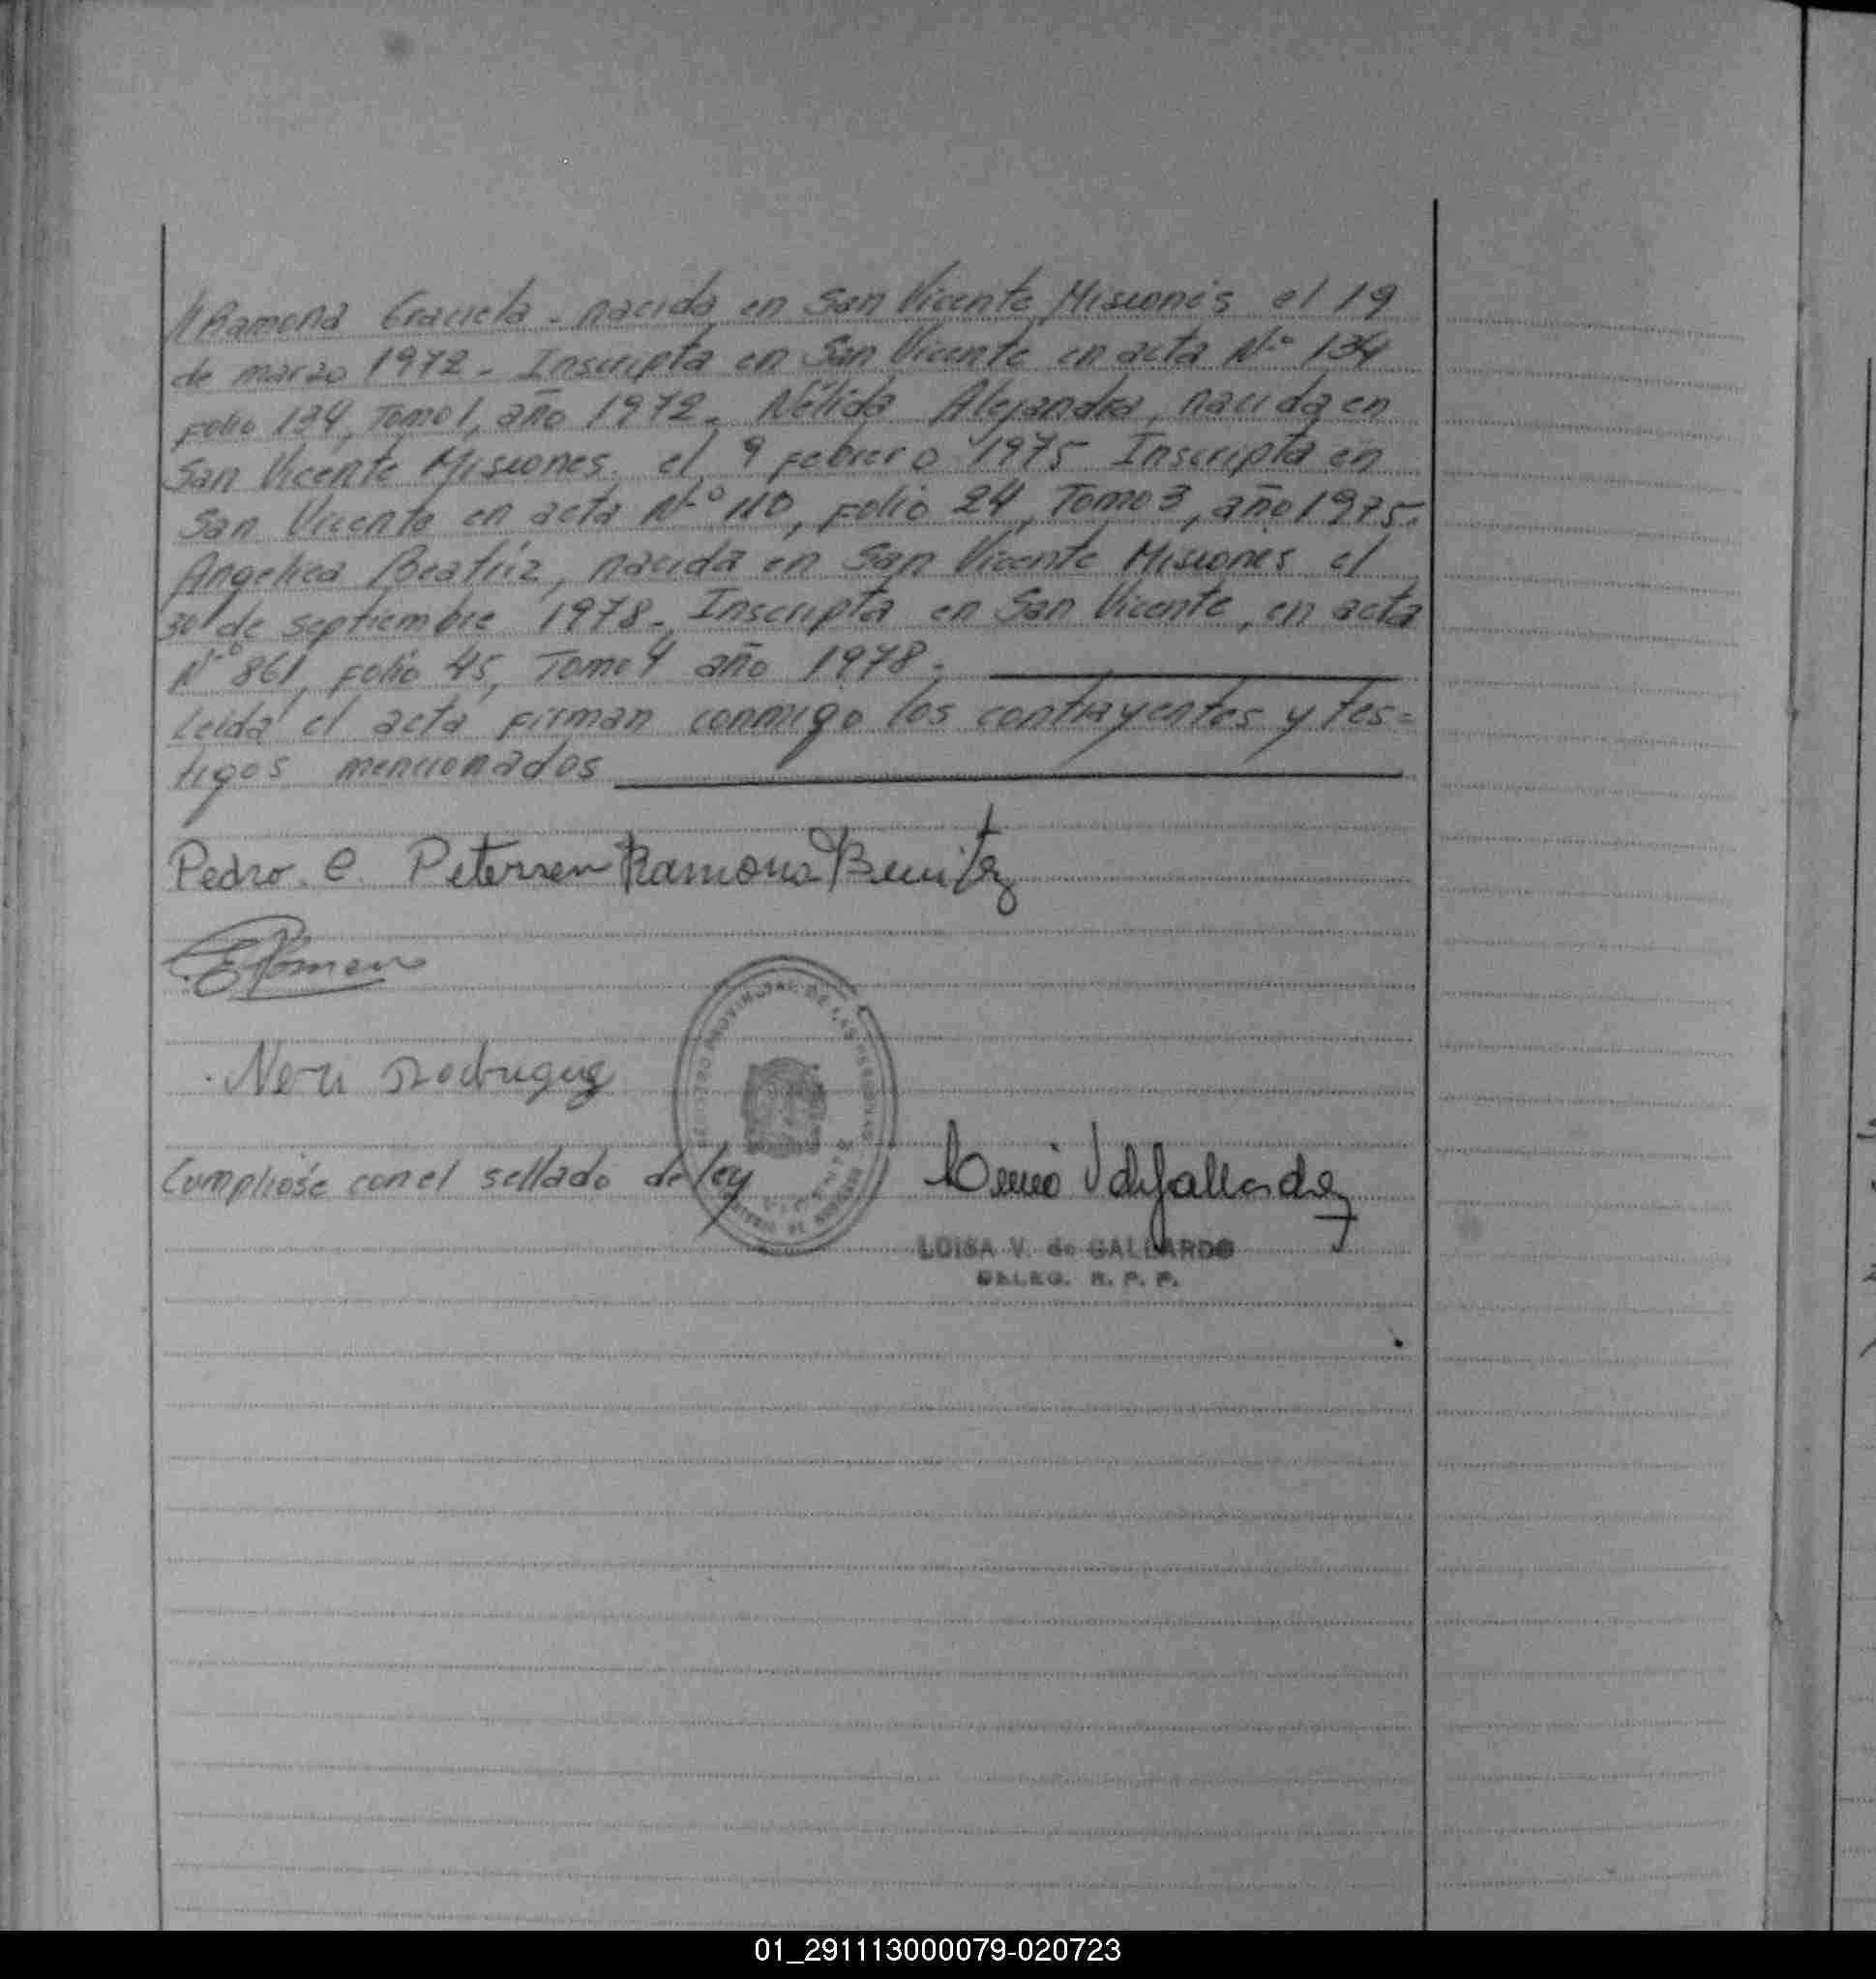 // Ramona Graciela - nacida en San Vicente Misiones el 19
de marzo 1972 - Inscripta en San Vicente en acta N° 134
Folio 134, Tomo 1, año 1972. Nélida Alejandra, nacida en
San Vicente Misiones. el 9 febrero 1975 Inscripta en
San Vicente en acta N° 110, Folio 24, Tomo 3, año 1975.
Angelica Beatriz, nacida en San Vicente Misiones el
30 de septiembre 1978 -, Inscripta en San Vicente, en acta
N° 861, Folio 45, Tomo 4 año 1978.
Leida el acta firman conmigo los contrayentes y tes=
tigos mencionados
Pedro. C. Petersen Ramona Benitez
Rodriguez
REGISTRO PROVINCIAL DE LAS PERSONAS
Cumplióse con el sellado de ley
LUISA V. de GALLARDO
DELEG. R. P. P.
01_291113000079-020723